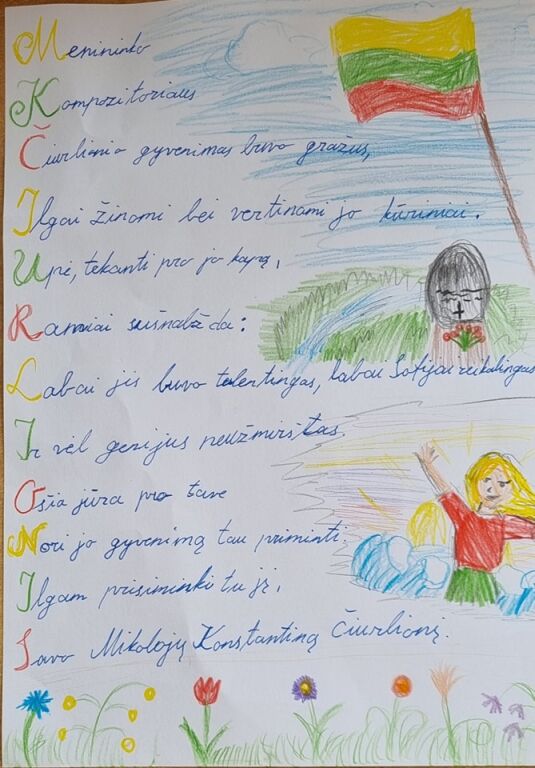 Menininko
Kompozitoriaus
Čiurlionio gyvenimas buvo gražus,
Ilgai žinomi bei vertinami jo kūriniai.
Upė, tekanti pro jo kapą,
Ramiai sušnabžda:
Labai jis buvo talentingas, labai Sofijai reikalingas
Ir vėl genijus neužmirštas.
Ošia jūra pro tave
Nori jo gyvenimą tau priminti.
Ilgam prisiminki tu jį,
Savo Mikolojų Konstantiną Čiurlionį.